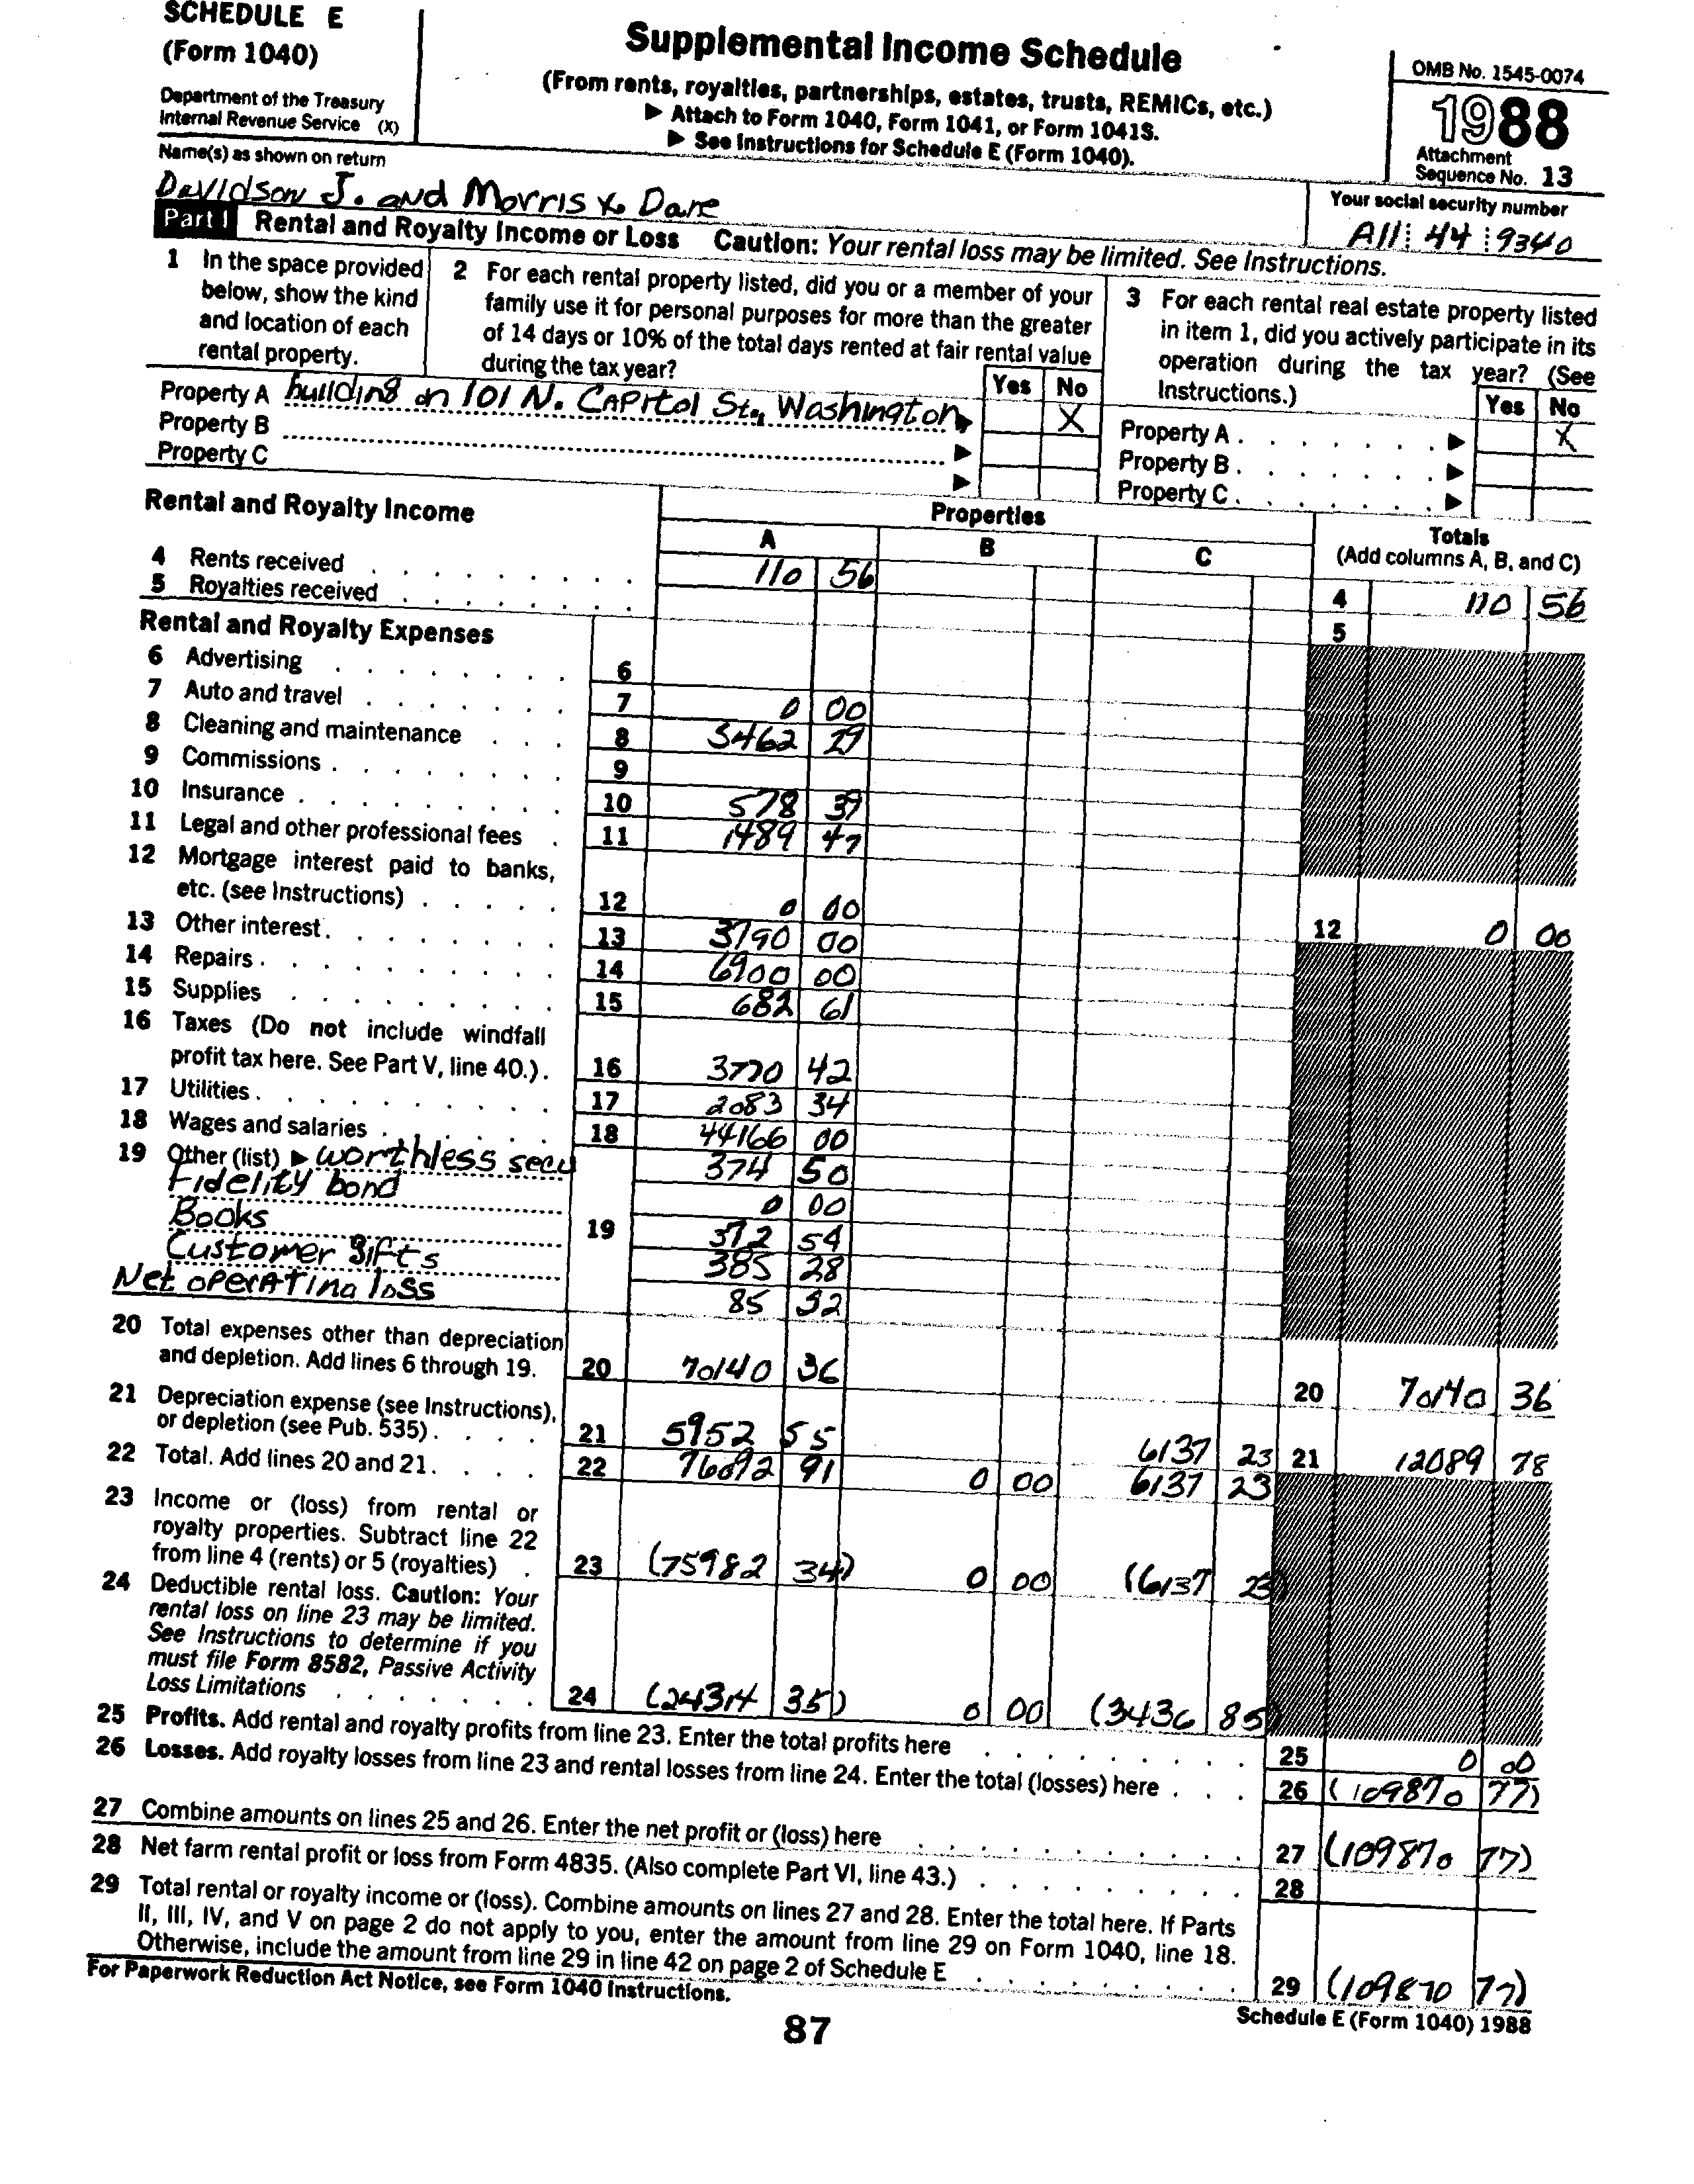 SCHEDULE E
(Form 1040)
Department of the Treasury
Internal Revenue Service (X)
Supplemental Income Schedule
(From rents, royalties, partnerships, estates, trusts, REMICs, etc.)
▶ Attach to Form 1040, Form 1041, or Form 1041S.
▶ See Instructions for Schedule E (Form 1040).
OMB No. 1545-0074
1988
Attachment
Sequence No. 13
Name(s) as shown on return
Davidson J. and Morris X. Dare
Your social security number
A11 44 9340
Part I Rental and Royalty Income or Loss Caution: Your rental loss may be limited. See Instructions.
1 In the space provided below, show the kind and location of each rental property.
2 For each rental property listed, did you or a member of your family use it for personal purposes for more than the greater of 14 days or 10% of the total days rented at fair rental value during the tax year?
Yes No
3 For each rental real estate property listed in item 1, did you actively participate in its operation during the tax year? (See Instructions.)
Yes No
Property A building on 101 N. Capitol St., Washington ▶ X
Property B ▶
Property C ▶
Property A ▶ X
Property B ▶
Property C ▶
Rental and Royalty Income
Properties
A B C
Totals
(Add columns A, B, and C)
4 Rents received 110 56 4 110 56
5 Royalties received 5
Rental and Royalty Expenses
6 Advertising 6
7 Auto and travel 7 0 00
8 Cleaning and maintenance 8 5462 29
9 Commissions 9
10 Insurance 10 578 39
11 Legal and other professional fees 11 1489 47
12 Mortgage interest paid to banks, etc. (see Instructions) 12 0 00 12 0 00
13 Other interest 13 3790 00
14 Repairs 14 6900 00
15 Supplies 15 682 61
16 Taxes (Do not include windfall profit tax here. See Part V, line 40.) 16 3770 42
17 Utilities 17 2083 34
18 Wages and salaries 18 44166 00
19 Other (list) ▶ worthless secu 374 50
Fidelity bond 0 00
Books 19 372 54
Customer gifts 385 28
Net operating loss 85 52
20 Total expenses other than depreciation and depletion. Add lines 6 through 19. 20 70140 36 20 70140 36
21 Depreciation expense (see Instructions), or depletion (see Pub. 535) 21 5952 55 6137 23 21 12089 78
22 Total. Add lines 20 and 21. 22 76092 91 0 00 6137 23
23 Income or (loss) from rental or royalty properties. Subtract line 22 from line 4 (rents) or 5 (royalties) 23 (75982 34) 0 00 (6137 23)
24 Deductible rental loss. Caution: Your rental loss on line 23 may be limited. See Instructions to determine if you must file Form 8582, Passive Activity Loss Limitations 24 (24314 35) 0 00 (3436 85)
25 Profits. Add rental and royalty profits from line 23. Enter the total profits here 25 0 00
26 Losses. Add royalty losses from line 23 and rental losses from line 24. Enter the total (losses) here 26 (109870 77)
27 Combine amounts on lines 25 and 26. Enter the net profit or (loss) here 27 (109870 77)
28 Net farm rental profit or loss from Form 4835. (Also complete Part VI, line 43.) 28
29 Total rental or royalty income or (loss). Combine amounts on lines 27 and 28. Enter the total here. If Parts II, III, IV, and V on page 2 do not apply to you, enter the amount from line 29 on Form 1040, line 18. Otherwise, include the amount from line 29 in line 42 on page 2 of Schedule E 29 (109870 77)
For Paperwork Reduction Act Notice, see Form 1040 Instructions.
Schedule E (Form 1040) 1988
87